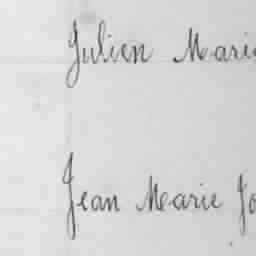 Julien Marie
Jean Marie Jo